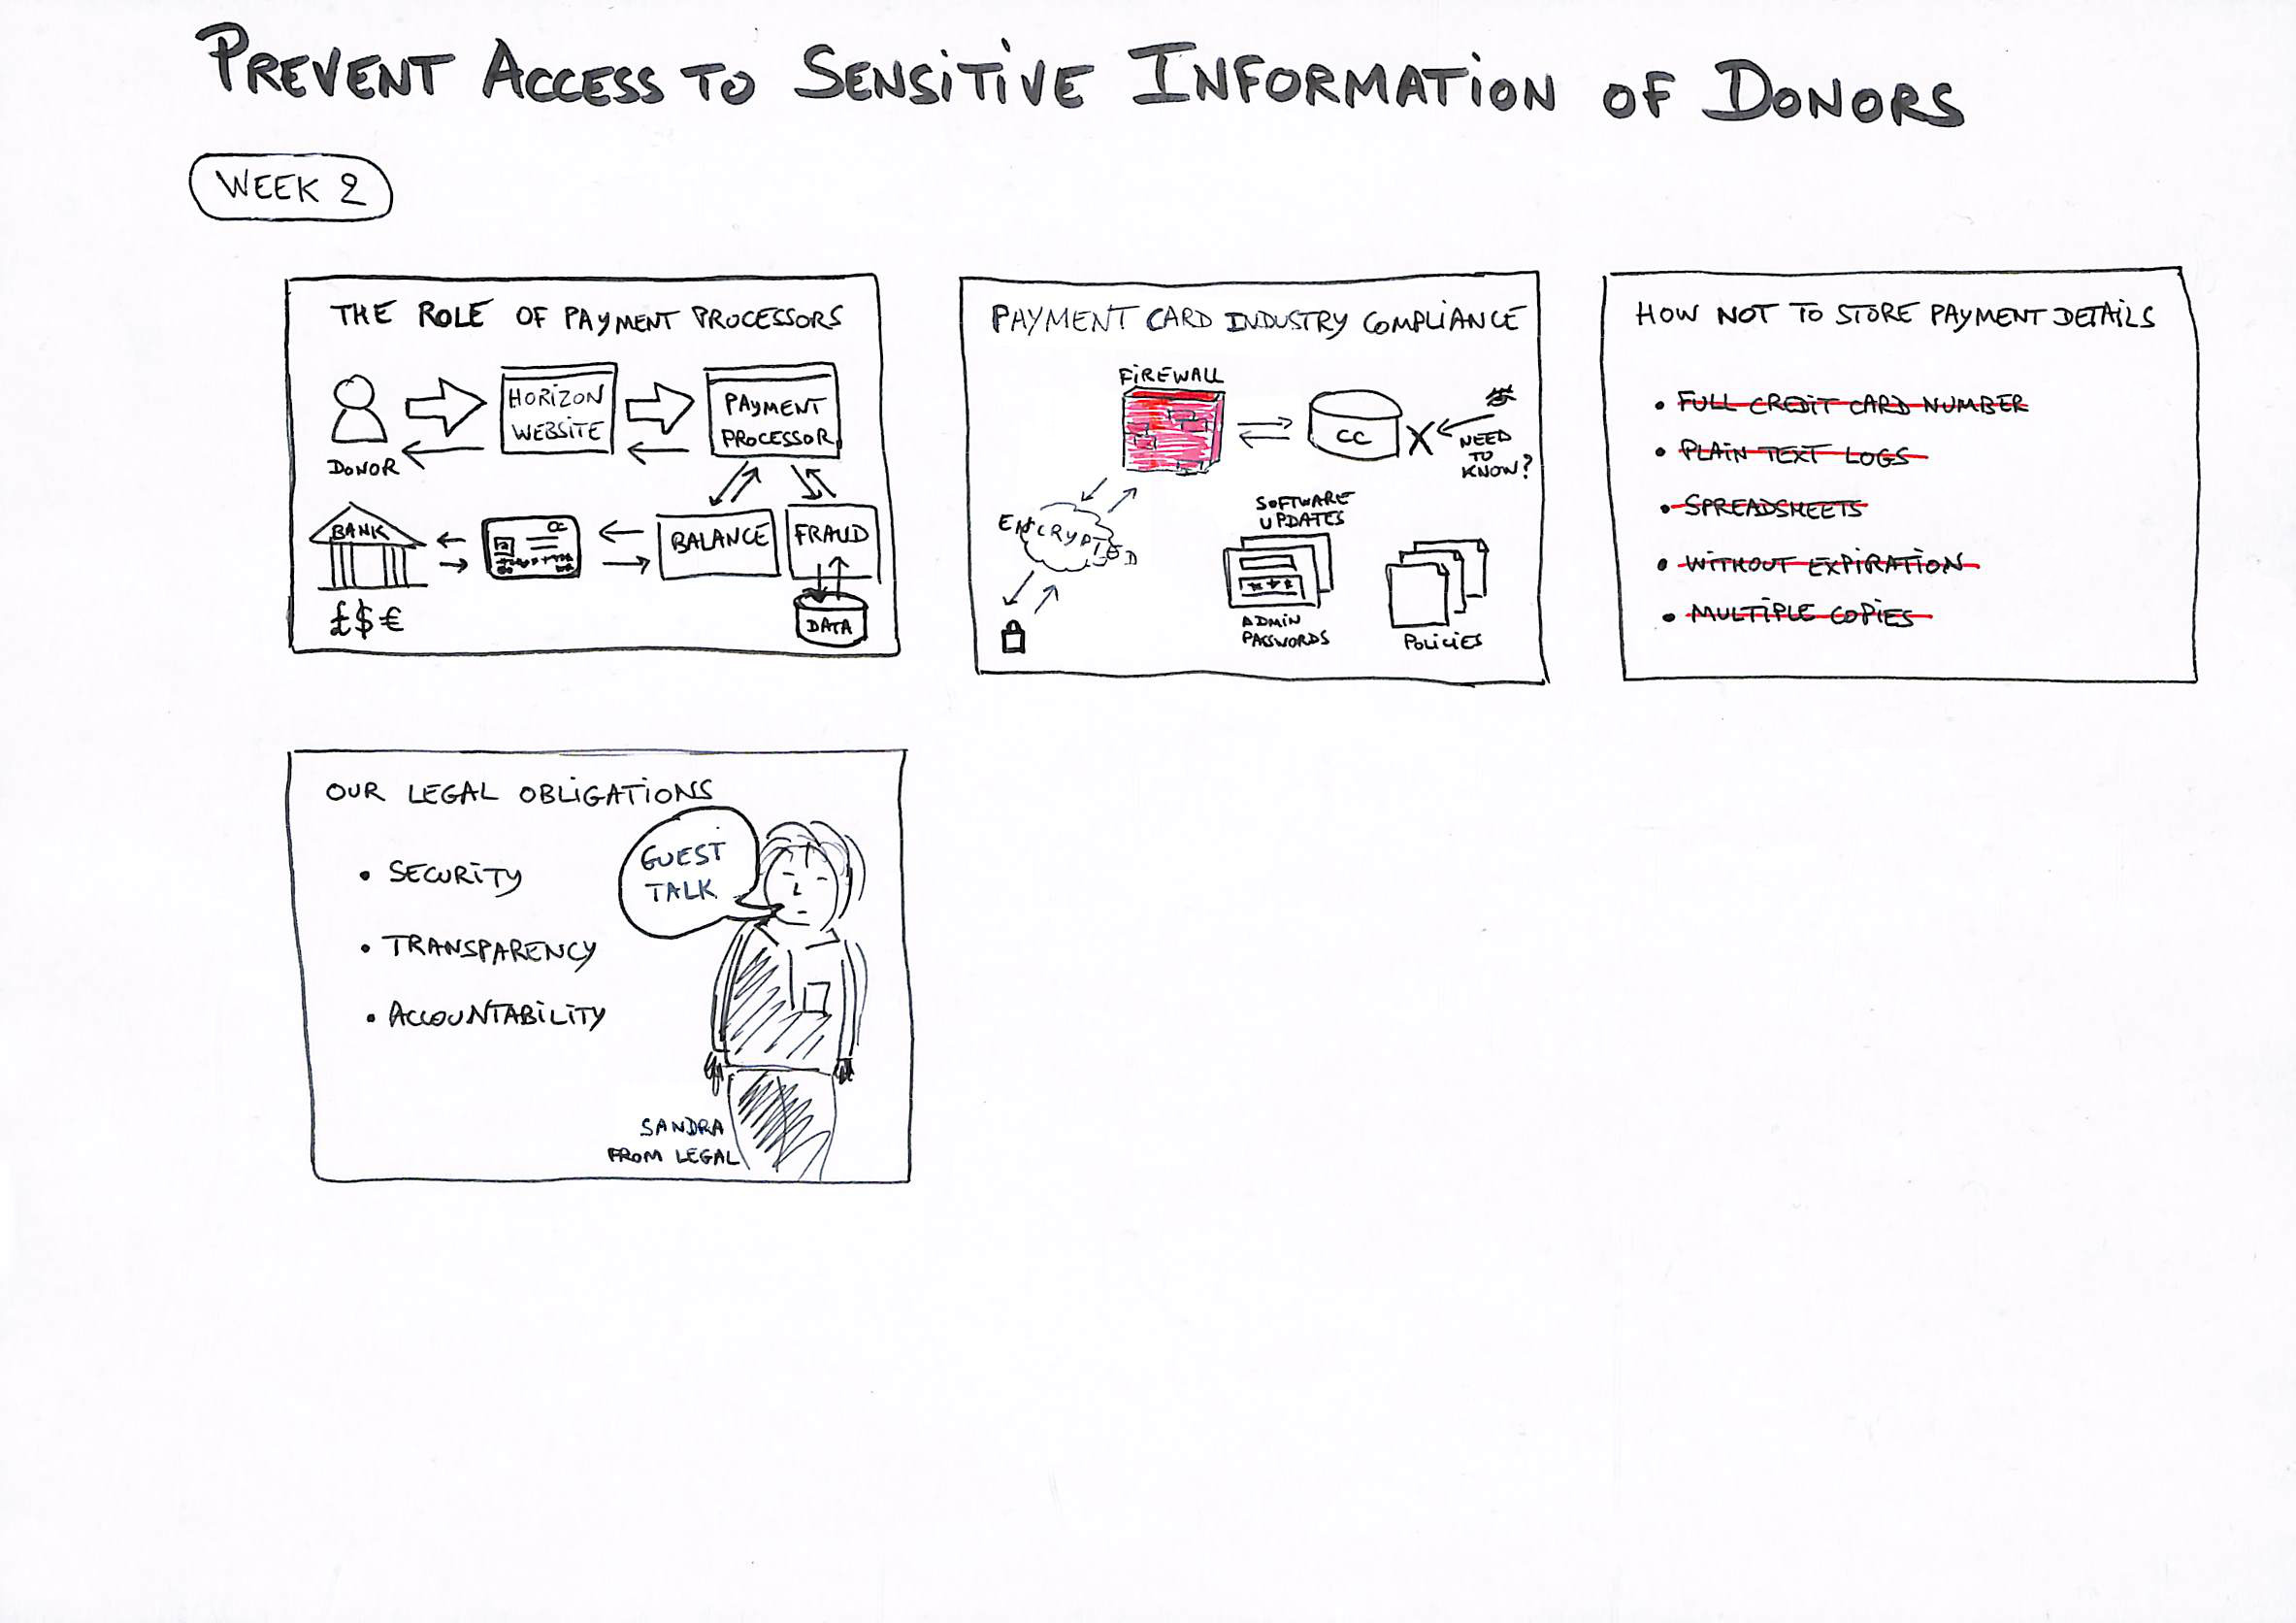 PREVENT ACCESS TO SENSITIVE INFORMATION OF DONORS
WEEK 2
THE ROLE OF PAYMENT PROCESSORS
DONOR
HORIZON
WEBSITE
PAYMENT
PROCESSOR
BANK
£$€
CC
BALANCE
FRAUD
DATA
PAYMENT CARD INDUSTRY COMPLIANCE
FIREWALL
CC
NEED
TO
KNOW?
ENCRYPTED
SOFTWARE
UPDATES
***
ADMIN
PASSWORDS
POLICIES
HOW NOT TO STORE PAYMENT DETAILS
• FULL CREDIT CARD NUMBER
• PLAIN TEXT LOGS
• SPREADSHEETS
• WITHOUT EXPIRATION
• MULTIPLE COPIES
OUR LEGAL OBLIGATIONS
• SECURITY
• TRANSPARENCY
• ACCOUNTABILITY
GUEST
TALK
SANDRA
FROM LEGAL